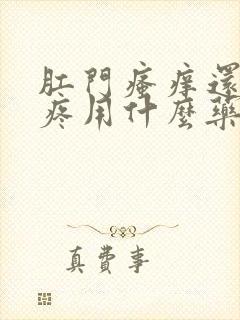 肛門瘙痒還
疼用什麼藥
真費事